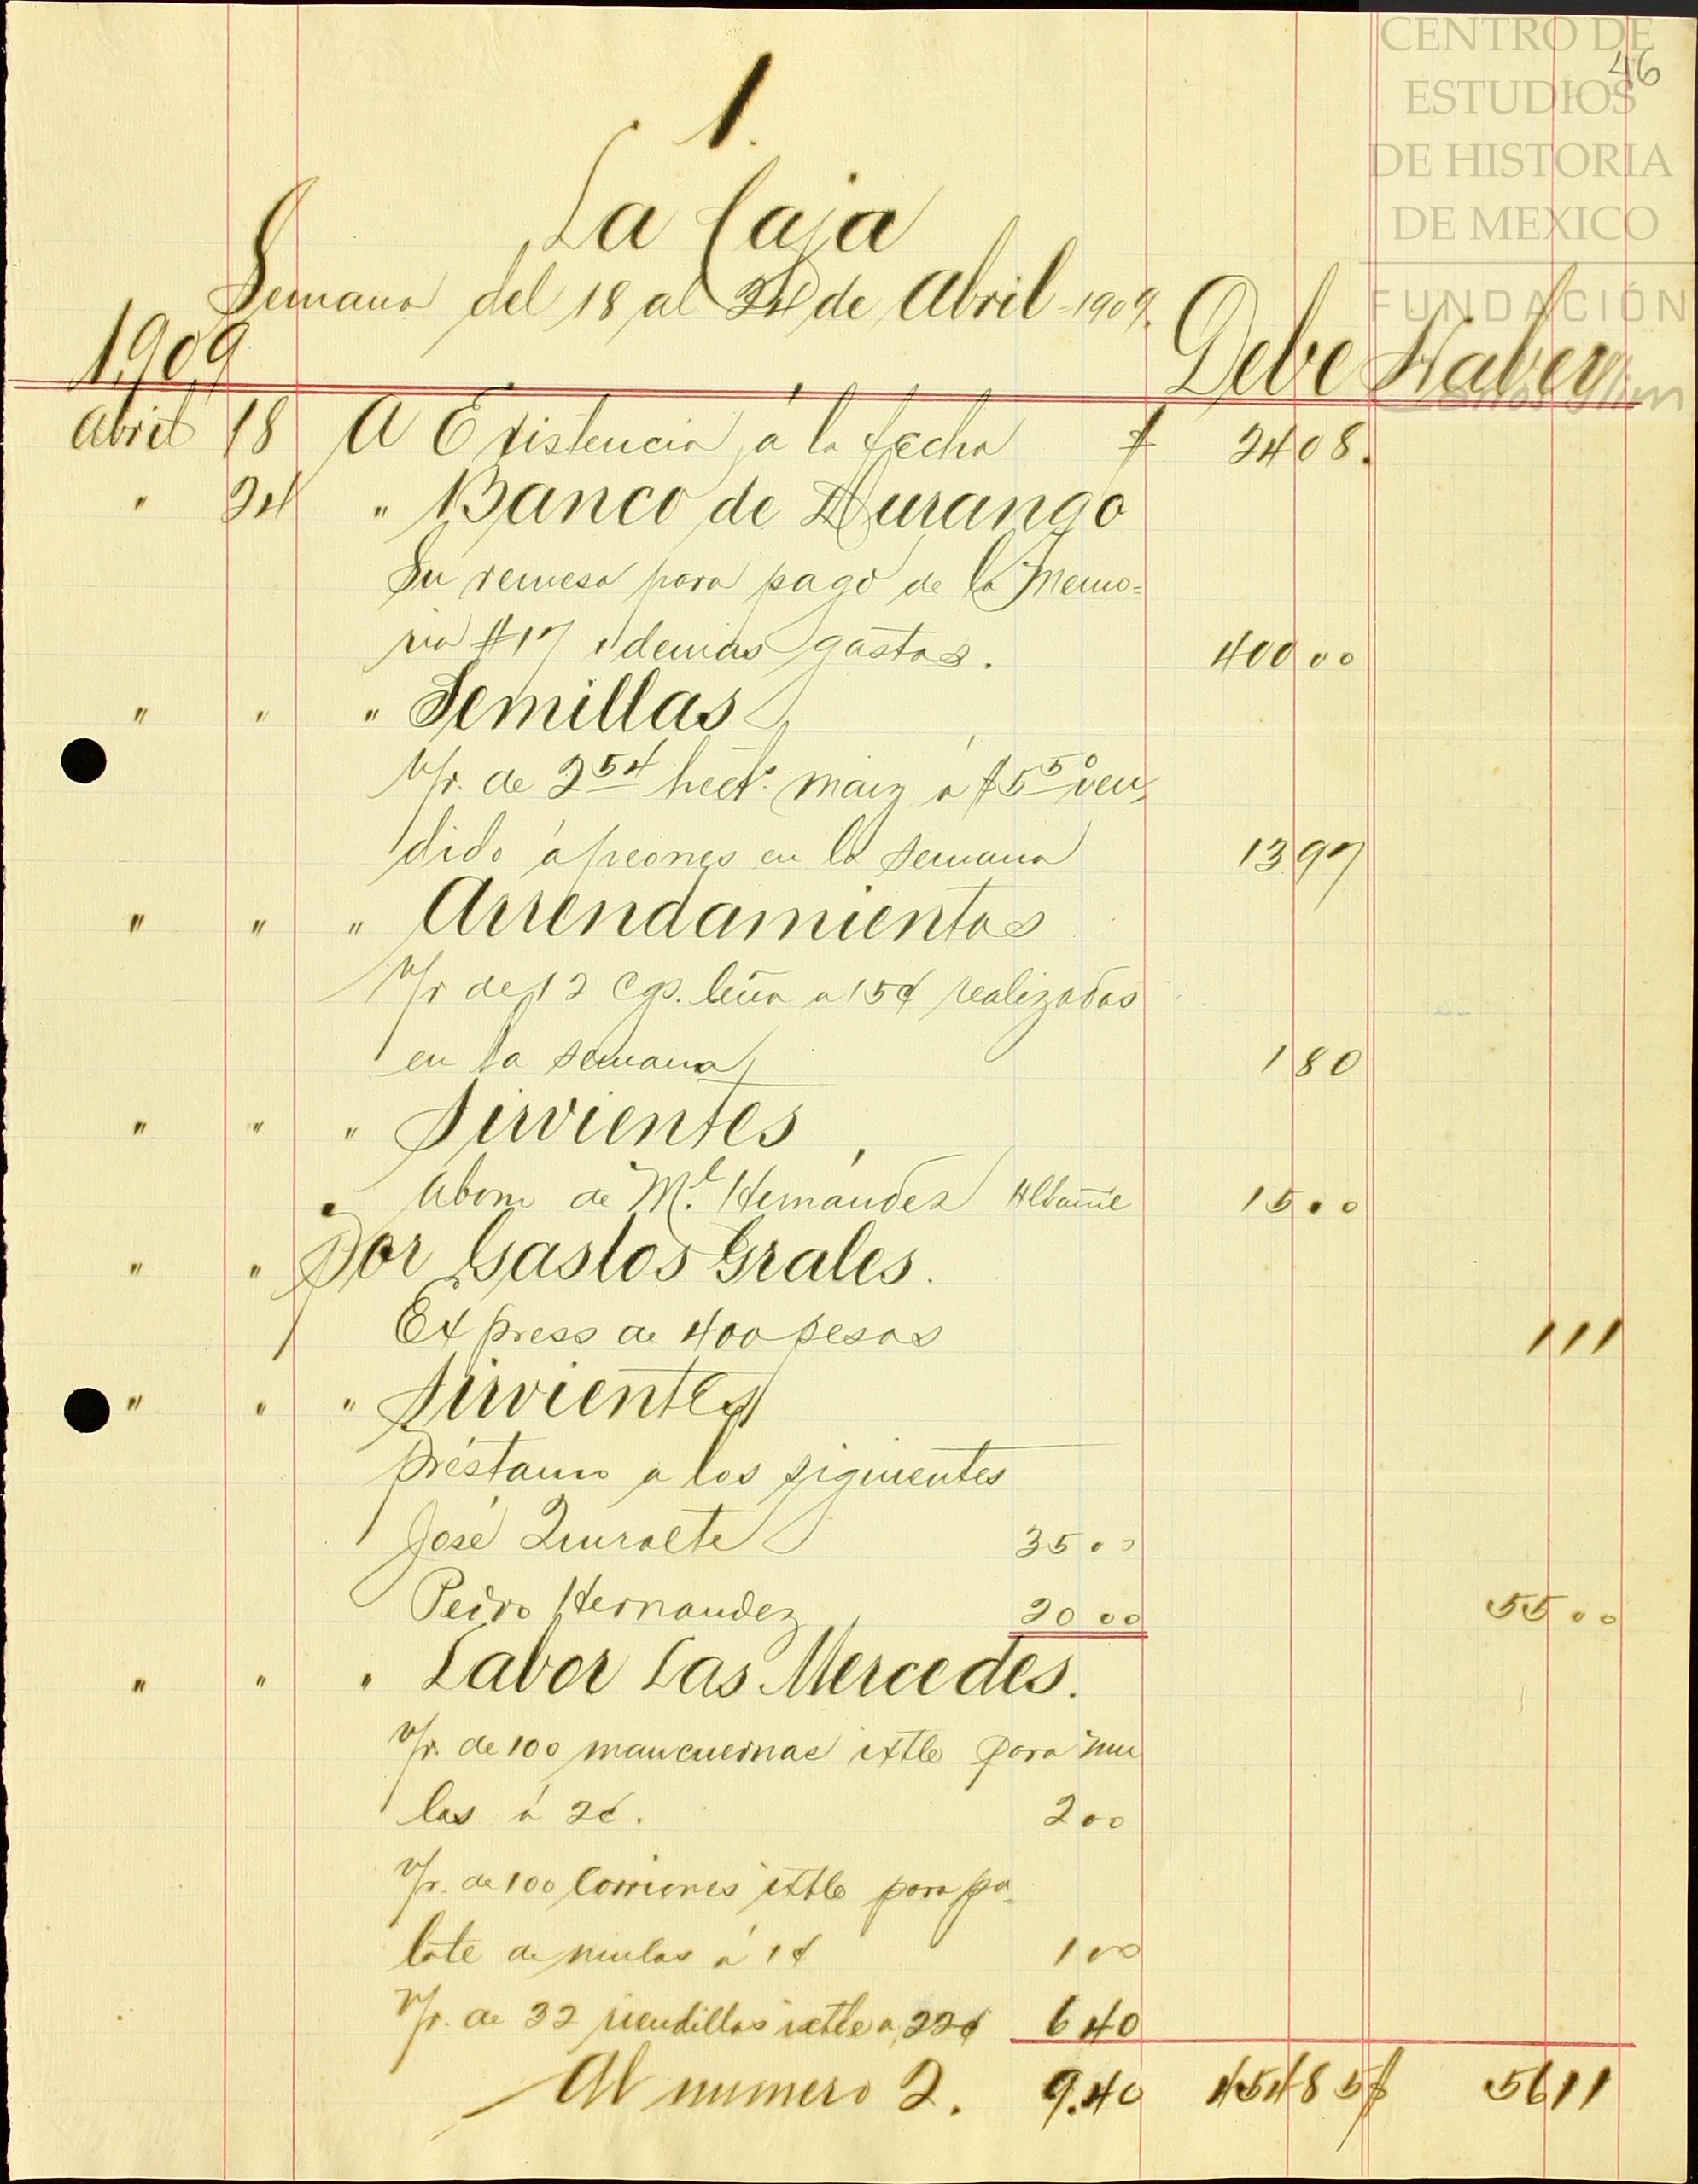 CENTRO DE
ESTUDIOS
DE HISTORIA
DE MEXICO
FUNDACIÓN
46
1.
La Caja
Semana del 18 al 24 de Abril -1909.
1909 Debe Haber
Abril 18 A Existencia á la fecha $ 2408.
" 24 " Banco de Durango
Su remesa para pago de la Memo=
ria #17 demas gastos. 400 00
" " " Semillas
V/r. de 2 54 hect.s maiz á $5 50 ven-
dido á peones en la semana 13 97
" " " Arrendamientos
V/r de 12 Cgs. leña a 15¢ realizadas
en la semana 1 80
" " " Sirvientes
Abono de M.l Hernández Albañil 15 00
" " Por Gastos Grales.
Express de 400 pesos 1 11
" " " Sirvientes
Préstamo a los siguientes
José 35 00
Pedro Hernandez 20 00 55 00
" " " Labor Las Mercedes.
V/r. de 100 mancuernas ixtle para mu
las á 2¢. 2 00
V/r. de 100 Corriones ixtle para pa-
lote de mulas á 1¢ 1 00
V/r. de 32 riendillas ixtle a 6 40
Al numero 2. 9.40 454 85 56 11